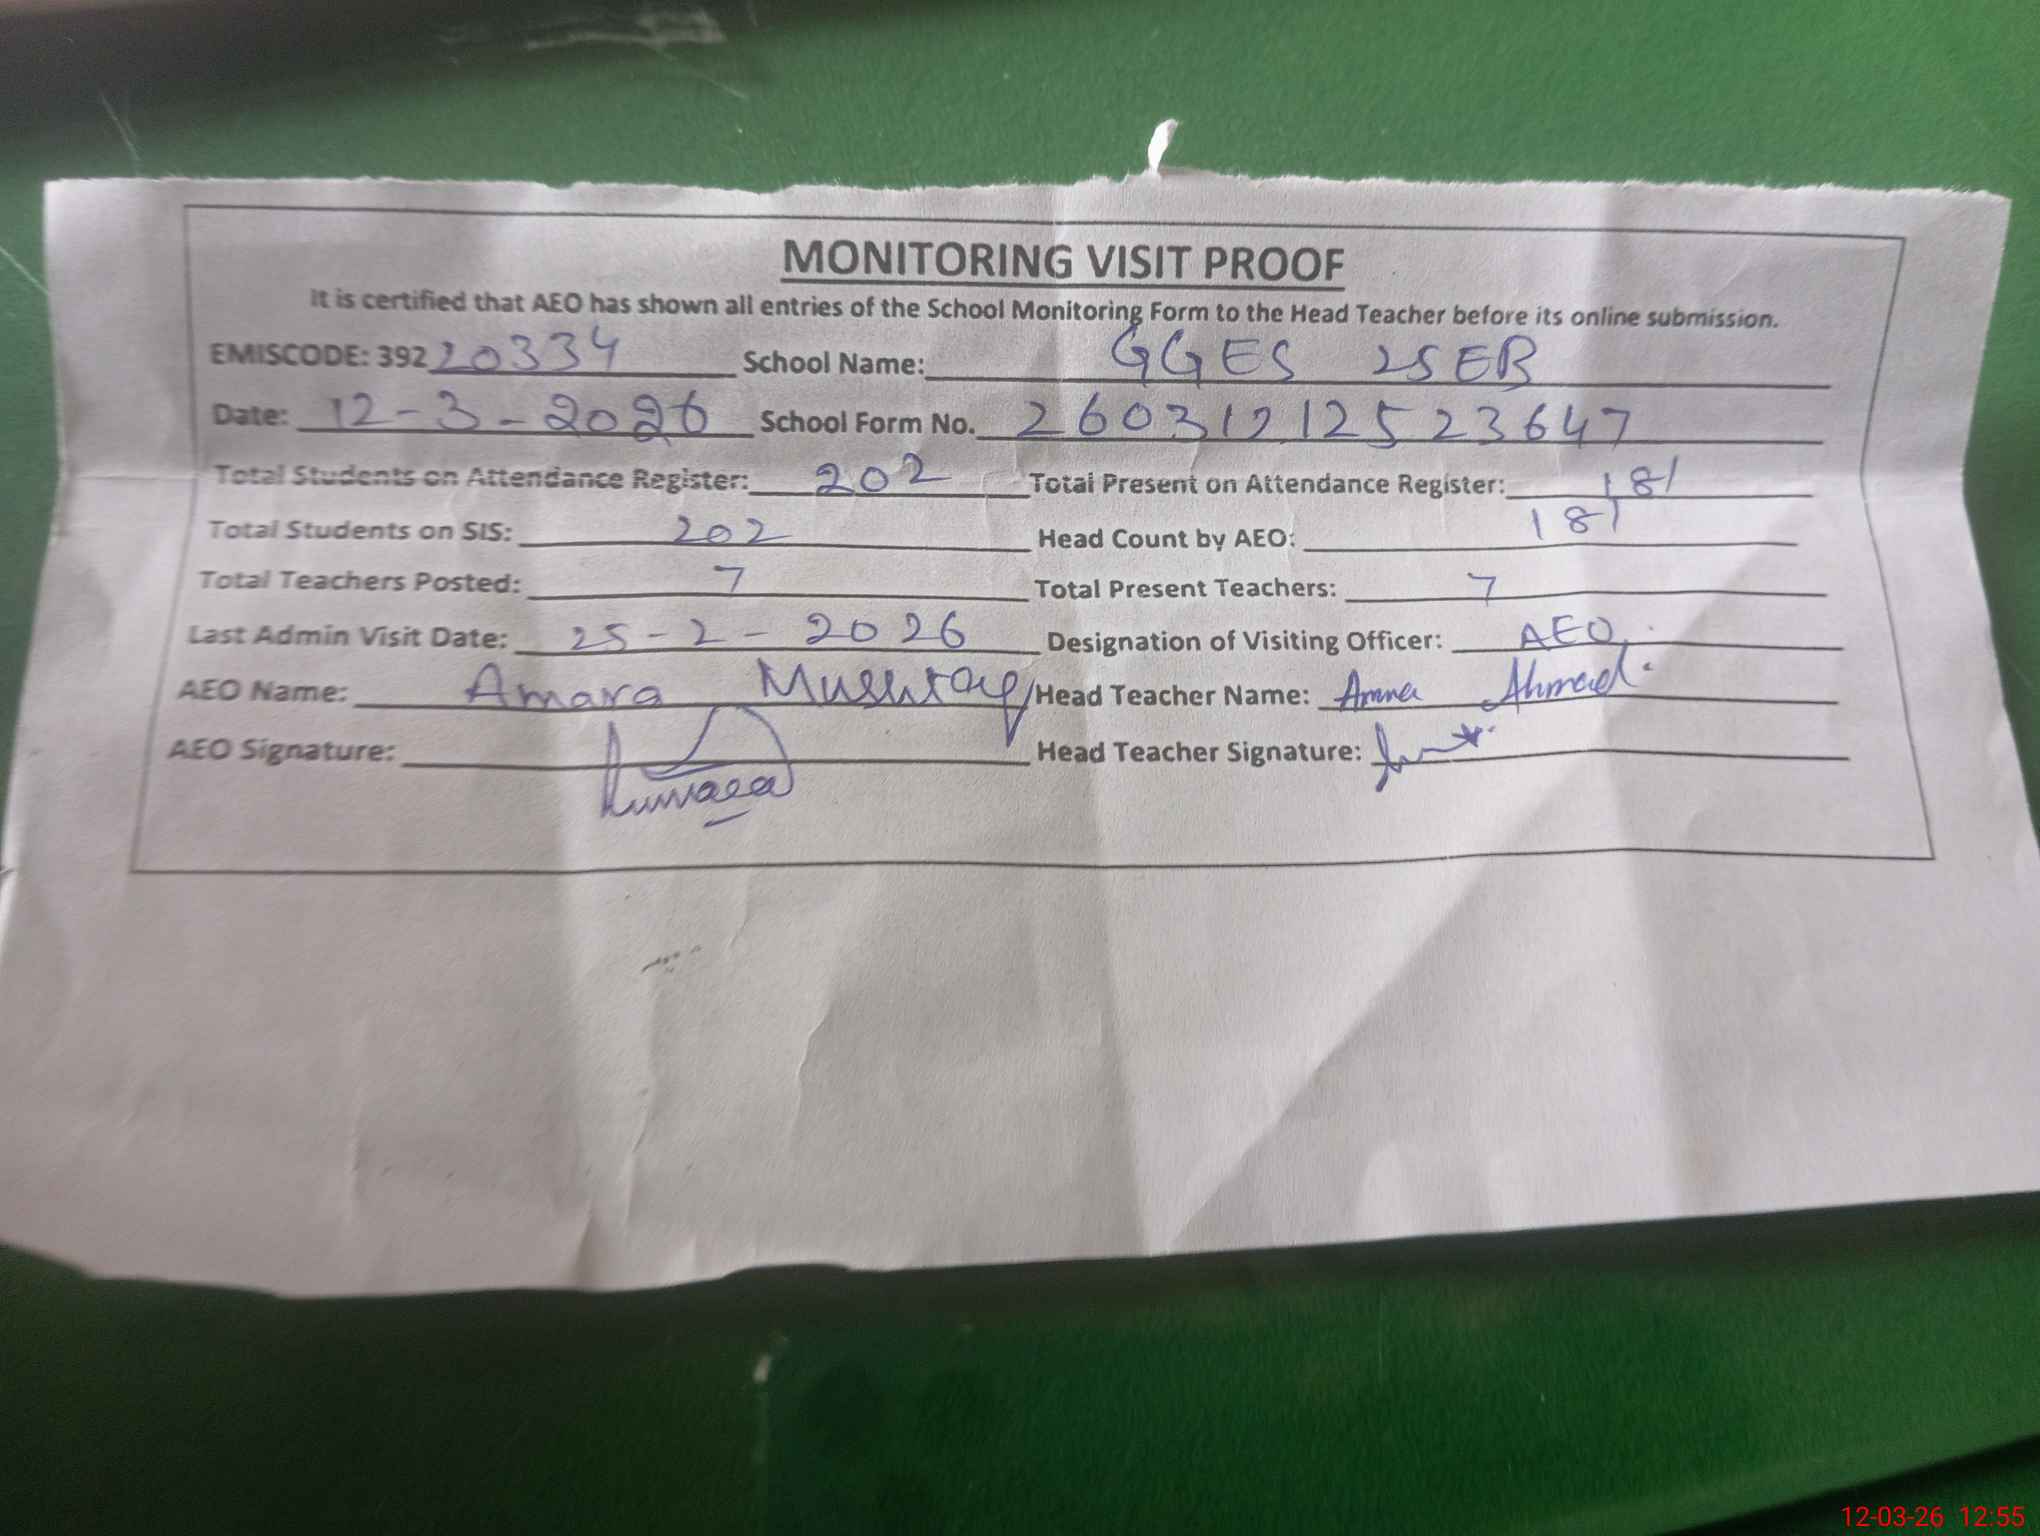 MONITORING VISIT PROOF
It is certified that AEO has shown all entries of the School Monitoring Form to the Head Teacher before its online submission.
EMISCODE: 39220334 School Name: GGES 25EB
Date: 12-3-2026 School Form No. 26031212523647
Total Students on Attendance Register: 202 Total Present on Attendance Register: 181
Total Students on SIS: 202 Head Count by AEO: 181
Total Teachers Posted: 7 Total Present Teachers: 7
Last Admin Visit Date: 25-2-2026 Designation of Visiting Officer: AEO
AEO Name: Amara Mushtaq Head Teacher Name: Amna Ahmad.
AEO Signature: Head Teacher Signature:
12-03-26 12:55